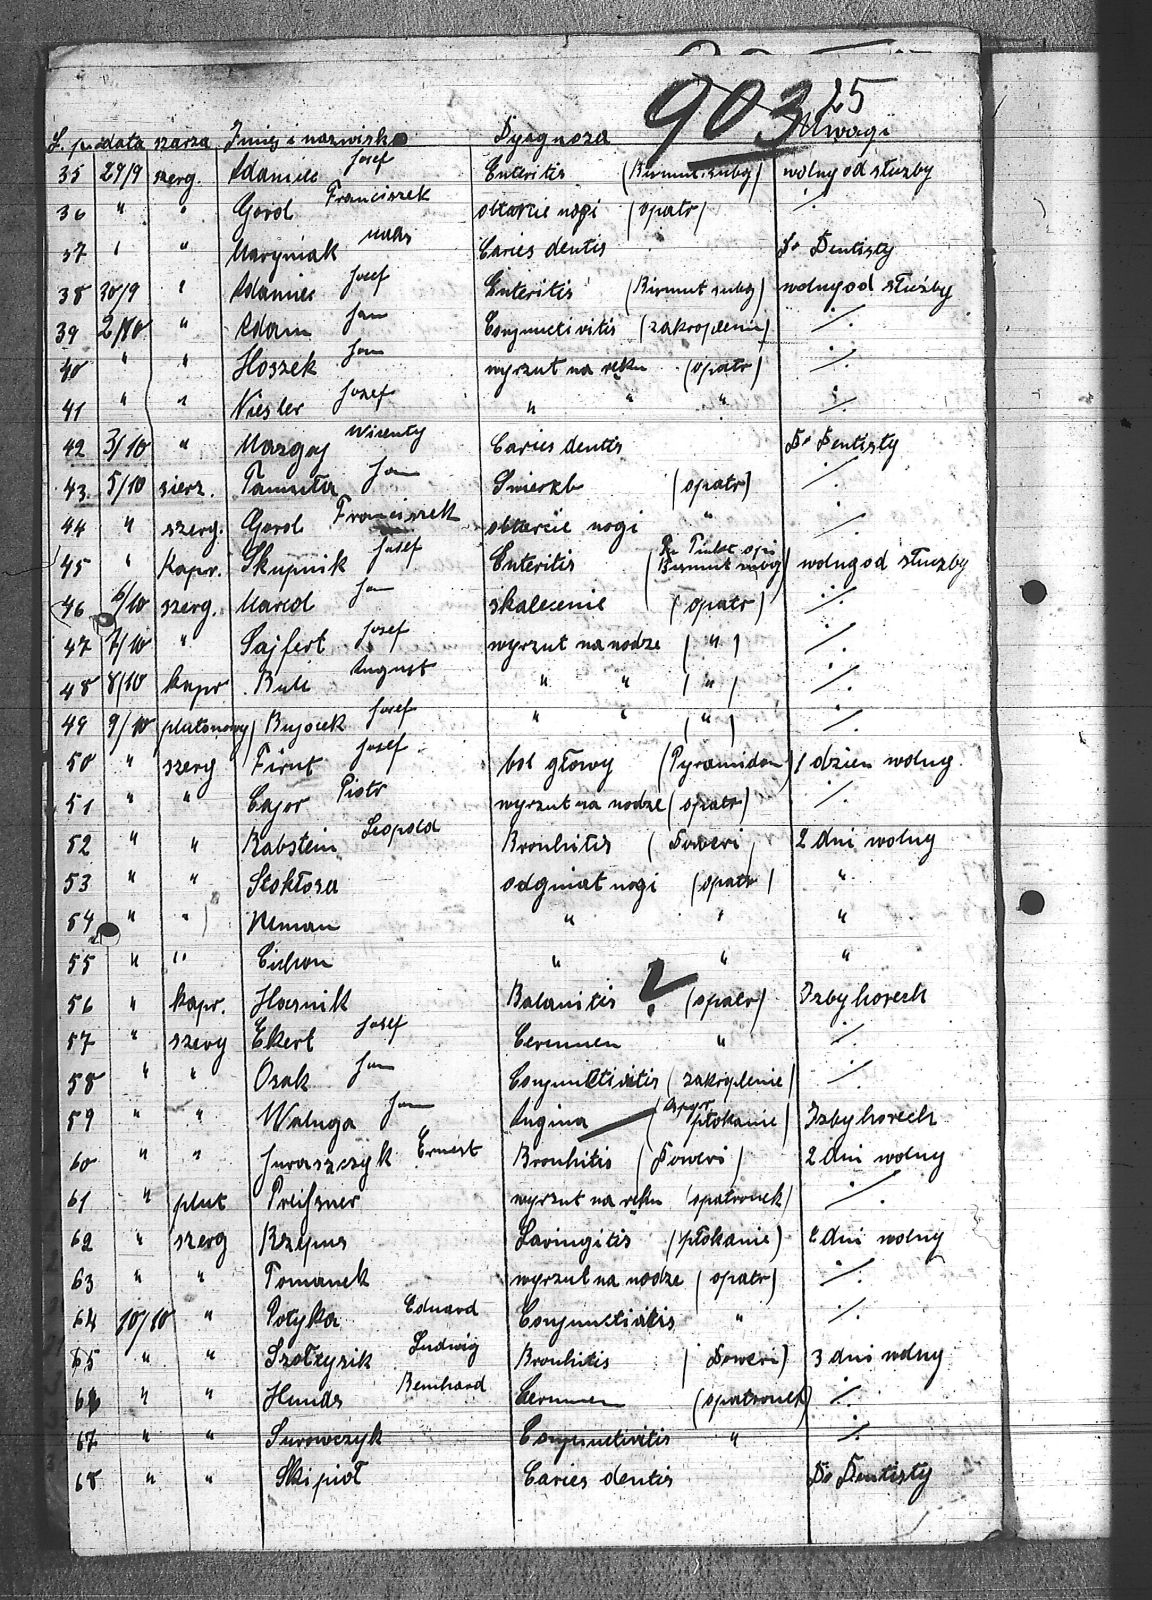 903 25
L.p. data szarza Imię i nazwisko Dyagnoza Uwagi
35 29/9 szerg. Adamiec Josef Enteritis (Bismut. subg) wolny od służby
36 " " Gorol Franciszek obtarcie nogi (opatr) /.
37 " " Maryniak Caries dentis Do Dentisty
38 30/9 " Adamiec Josef Enteritis (Bismut subg) wolny od służby
39 2/10 " Adam Jan Conjunctivitis (zakroplenie) ./.
40 " " Hoszek Jan wyrzut na ręku (opatr) ./.
41 " " Niesler Jozef " " " ./.
42 3/10 " Mazgaj Wicenty Caries dentis Do Dentisty
43. 5/10 sierz. Jan Swierzb (opatr) ./.
44 " szerg. Gorol Franciszek obtarcie nogi " ./.
45 " Kapr. Skupnik Josef Enteritis (Bismut subg) wolny od służby
46 6/10 szerg. Marcol Jan skalecenie (opatr) ./.
47 7/10 " Sajfert Jozef wyrzut na nodze ( " ) ./.
48 8/10 kapr Buli August " " ( " ) ./.
49 9/10 plutonowy Bujocek Josef " " ( " ) ./.
50 " szerg Firut Josef bol głowy (Pyramidon) 1 dzien wolny.
51 " " Cajor Piotr wyrzut na nodze (opatr) ./.
52 " " Rabstein Leopold Bronhitis (Doweri) 2 dni wolny
53 " " Stokłosa odgniat nogi (opatr) "
54 " " Neman " " "
55 " " Cichon " " "
56 " kapr. Hosnik Balanitis ? (opatr) Izby horech
57 " szerg Ekert Josef Cerumen " ./.
58 " " Ozak Jan Conjunctivitis (zakroplenie) ./.
59 " " Waluga Jan Angina (Aspyr płokanie) Izby horech
60 " " Juraszczyk Ernest Bronhitis (Doweri) 2 dni wolny
61 " plut Preisner wyrzut na ręku (opatronek) ./.
62 " szerg Rzepus Laringitis (płokanie) 2 dni wolny
63 " " Tomanek wyrzut na nodze (opatr) ./.
64 10/10 " Potyka Eduard Conjunctivitis " ./.
65 " " Szołtysik Ludwig Bronhitis (Doweri) 3 dni wolny
66 " " Hunds Bernhard Cerumen (opatronek) ./.
67 " " Surowczyk Conjunctivitis " ./.
68 " " Skipioł Caries dentis Do Dentisty